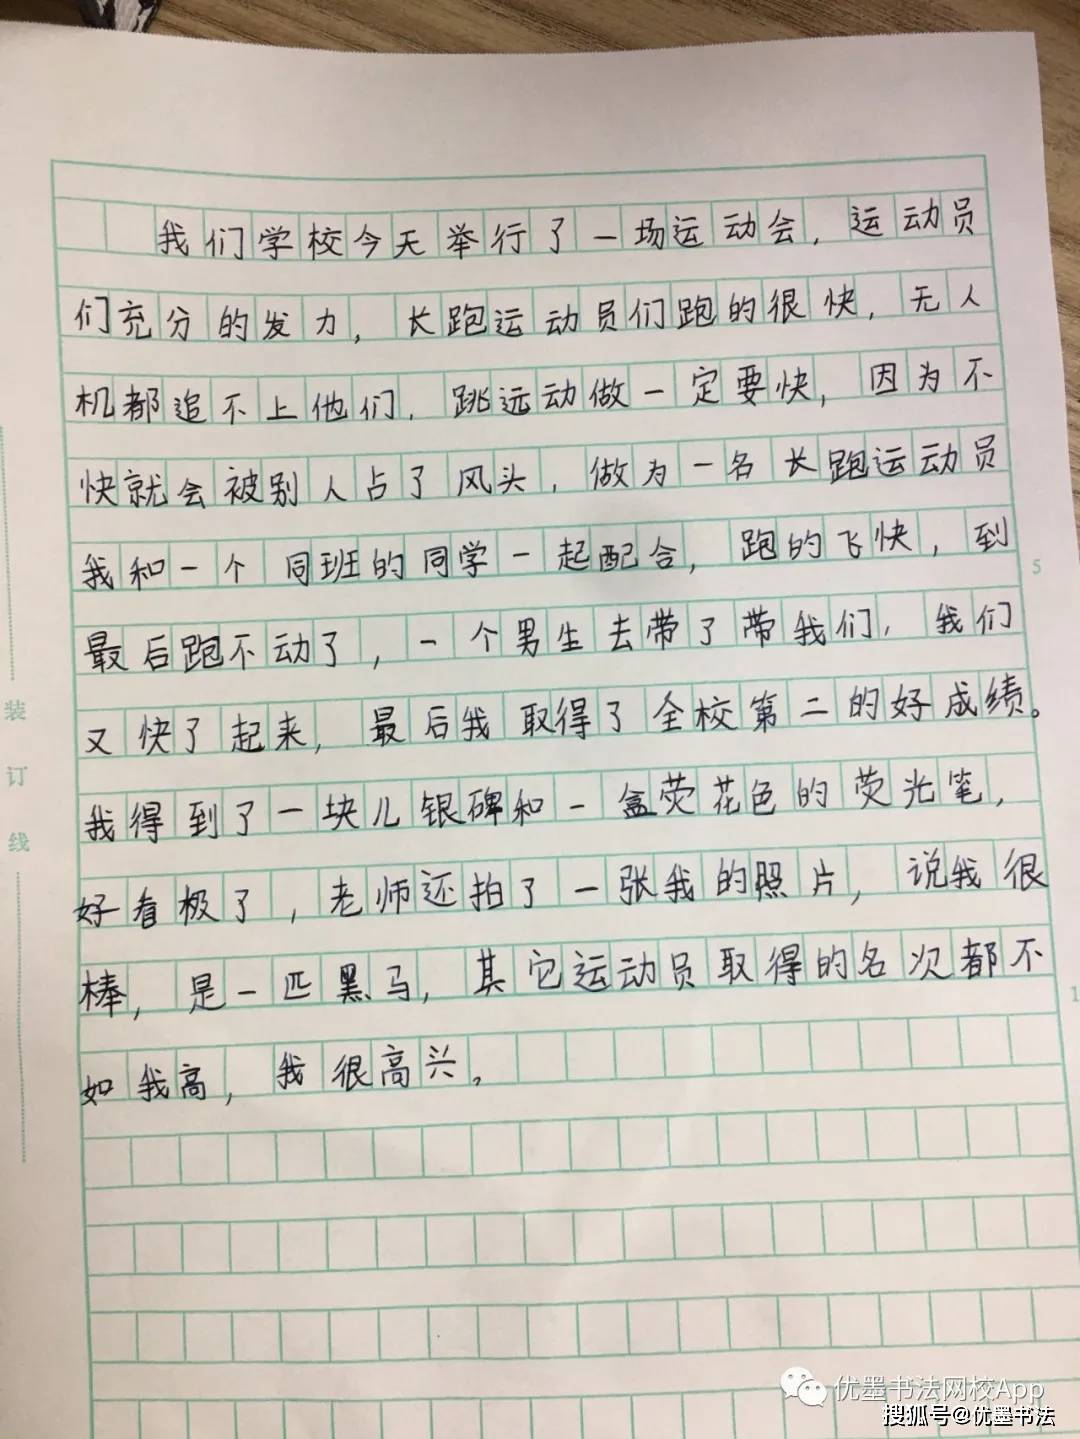 我们学校今天举行了一场运动会，运动员
们充分的发力，长跑运动员们跑的很快，无人
机都追不上他们，跳远动做一定要快，因为不
快就会被别人占了风头，做为一名长跑运动员
我和一个同班的同学一起配合，跑的飞快，到
5
最后跑不动了，一个男生去带了带我们，我们
又快了起来，最后我取得了全校第二的好成绩。
我得到了一块儿银碑和一盒荧花色的荧光笔，
好看极了，老师还拍了一张我的照片，说我很
棒，是一匹黑马，其它运动员取得的名次都不
1
如我高，我很高兴。
装
订
线
优墨书法网校App
搜狐号@优墨书法